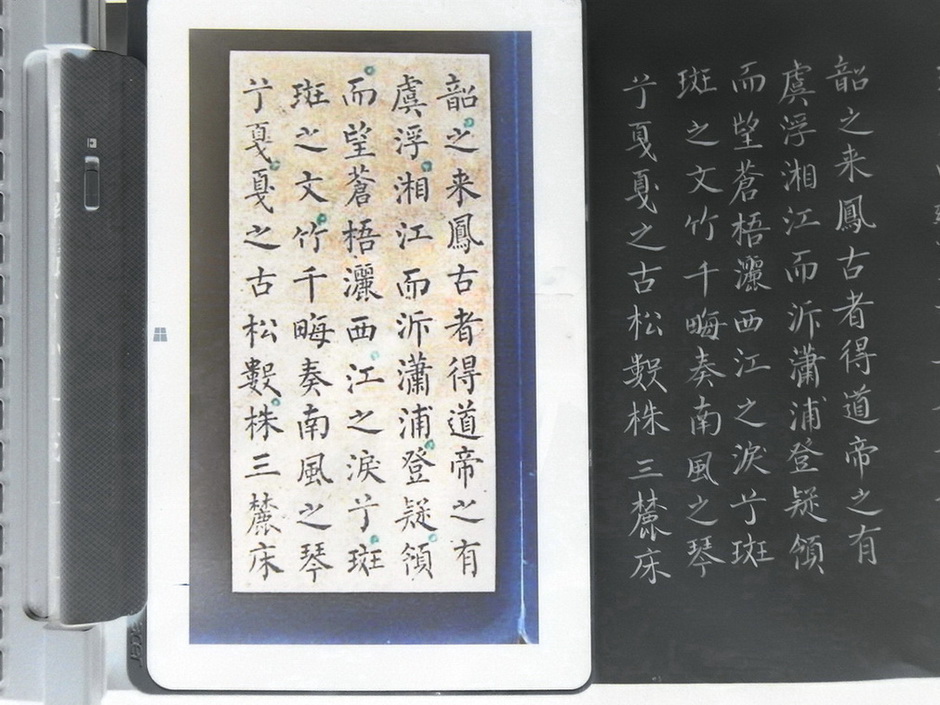 韶之来鳳古者得道帝之有
虞浮湘江而泝瀟浦登疑領
而望蒼梧灑西江之淚兮斑
斑之文竹千畮奏南風之琴
兮戛戛之古松數株三麓床
韶之来鳳古者得道帝之有
虞浮湘江而泝瀟浦登疑領
而望蒼梧灑西江之淚兮斑
斑之文竹千畮奏南風之琴
兮戛戛之古松數株三麓床
acer